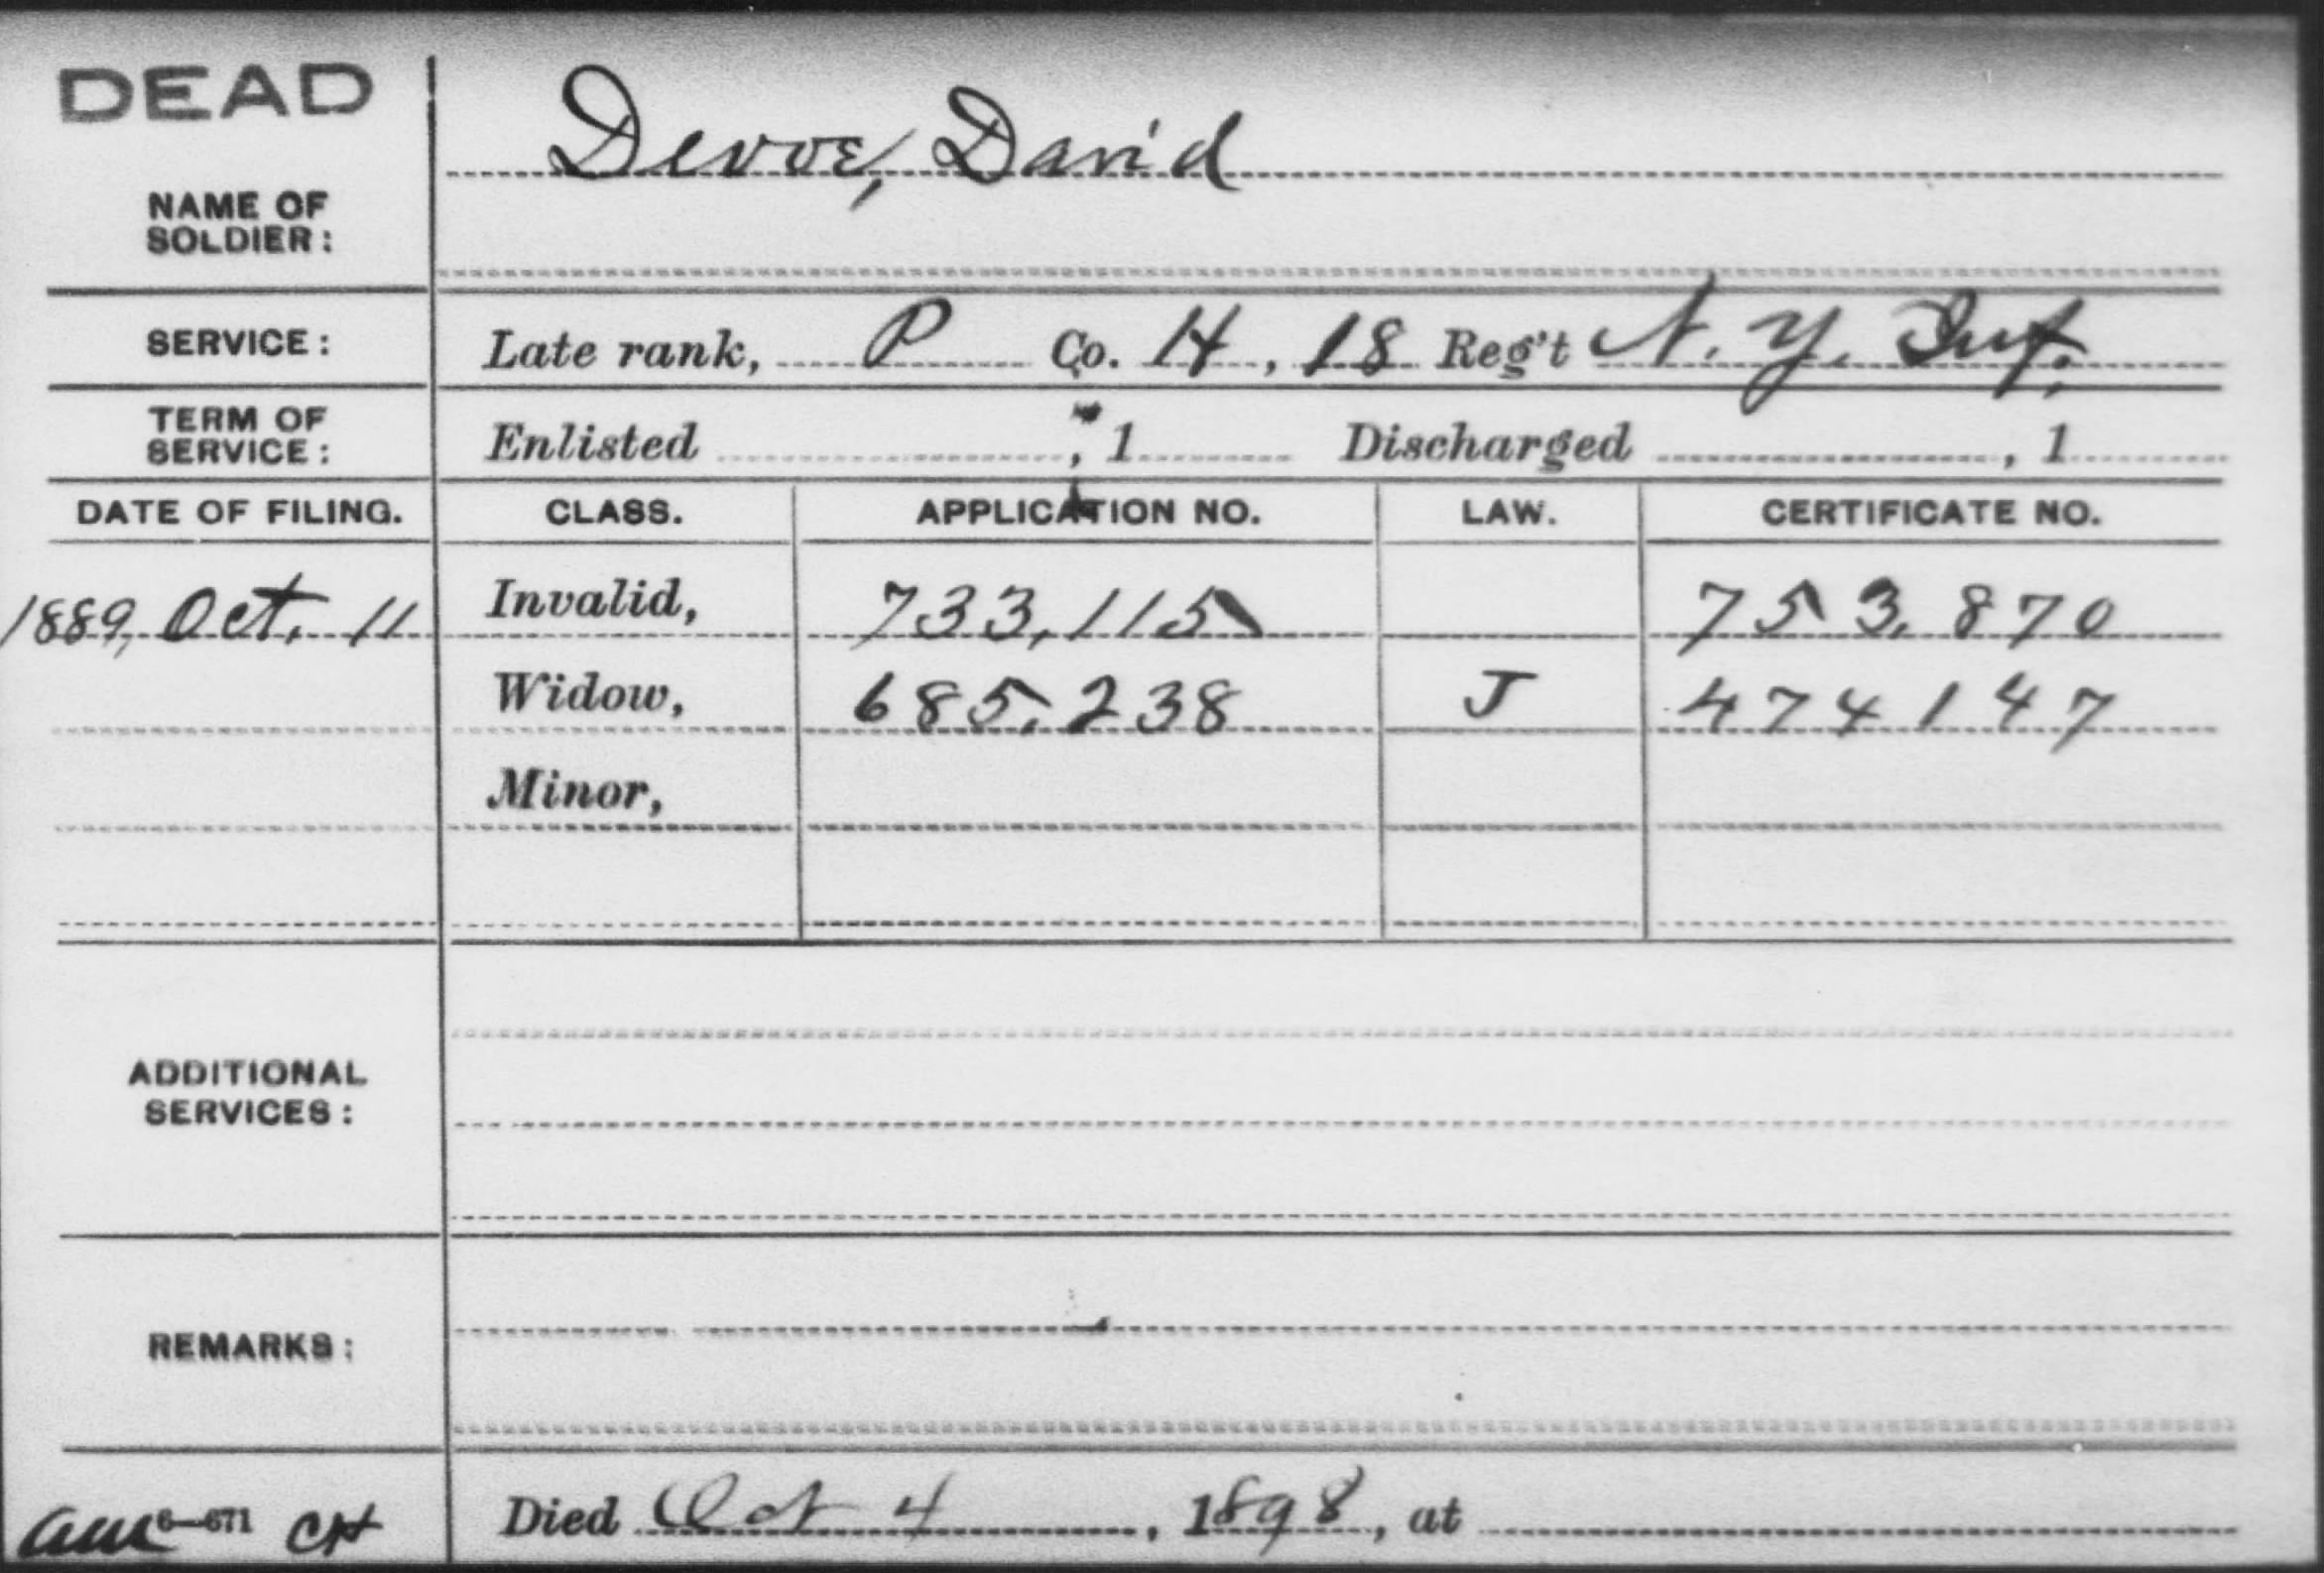 DEAD
Devoe, David
NAME OF
SOLDIER:
SERVICE: Late rank, P Co. H, 18 Reg't N. Y. Inf.
TERM OF
SERVICE: Enlisted , 1 Discharged , 1
DATE OF FILING. CLASS. APPLICATION NO. LAW. CERTIFICATE NO.
1889, Oct. 11 Invalid, 733,115 753,870
Widow, 685,238 J 474147
Minor,
ADDITIONAL
SERVICES:
REMARKS:
6-671 Died Oct 4, 1898, at